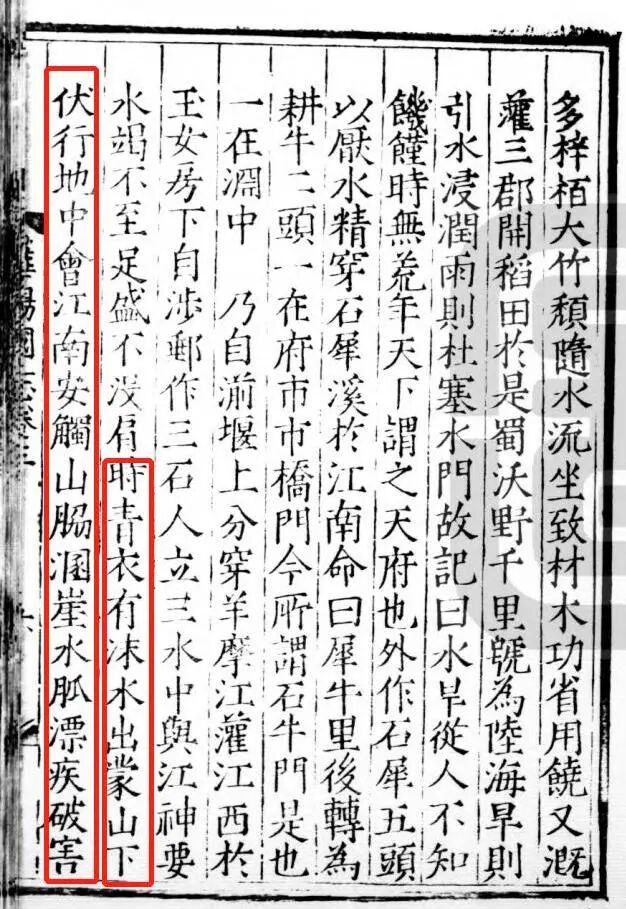 多梓栢大竹頹隨水流坐致材木功省用饒又溉
灌三郡開稻田於是蜀沃野千里號為陸海旱則
引水浸潤雨則杜塞水門故記曰水旱從人不知
饑饉時無荒年天下謂之天府也外作石犀五頭
以厭水精穿石犀溪於江南命曰犀牛里後轉為
耕牛二頭一在府市市橋門今所謂石牛門是也
一在淵中 乃自湔堰上分穿羊摩江灌江西於
玉女房下自涉郵作三石人立三水中與江神要
水竭不至足盛不沒肩時青衣有沫水出蒙山下
伏行地中會江南安觸山脇溷崖水脈漂疾破害
陽國志卷三
六